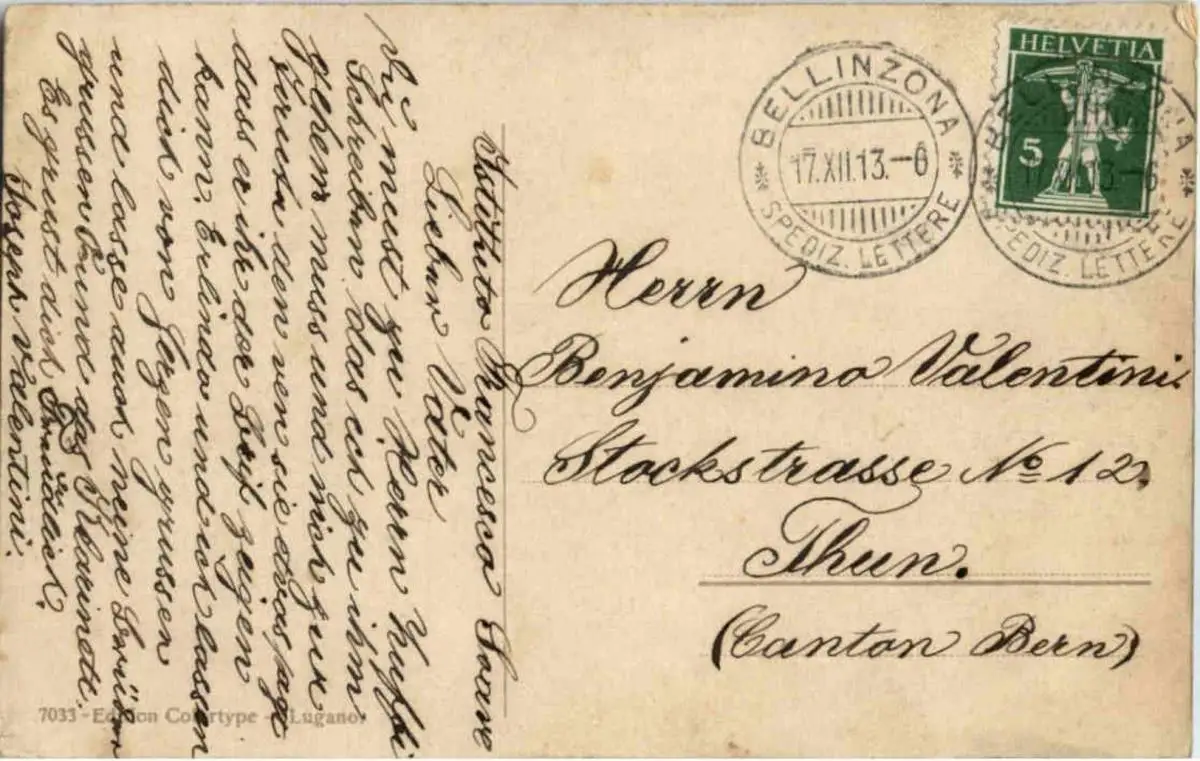 HELVETIA
5
BELLINZONA
17.XII.13.-6
SPEDIZ. LETTERE
BELLINZONA
17.XII.13-6
SPEDIZ. LETTERE
Herrn
Benjamino Valentini.
Stockstrasse No 12.
Thun.
(Canton Bern)
Istituto Francesco Soave
Lieber Vater
Di must zu Herrn
Schreiben das ich zu ihm
gehen muss und mich zur
den ven sie das sagt
dass er ihr der Brif zeigen
kann. Erlindo und ich lassen
dich von Herzen grussen
und lasse auch meine Brüder
grussen und das Klarinett.
Es grust dich
Joseph Valentini.
7033 - Edition Colortype - Lugano.